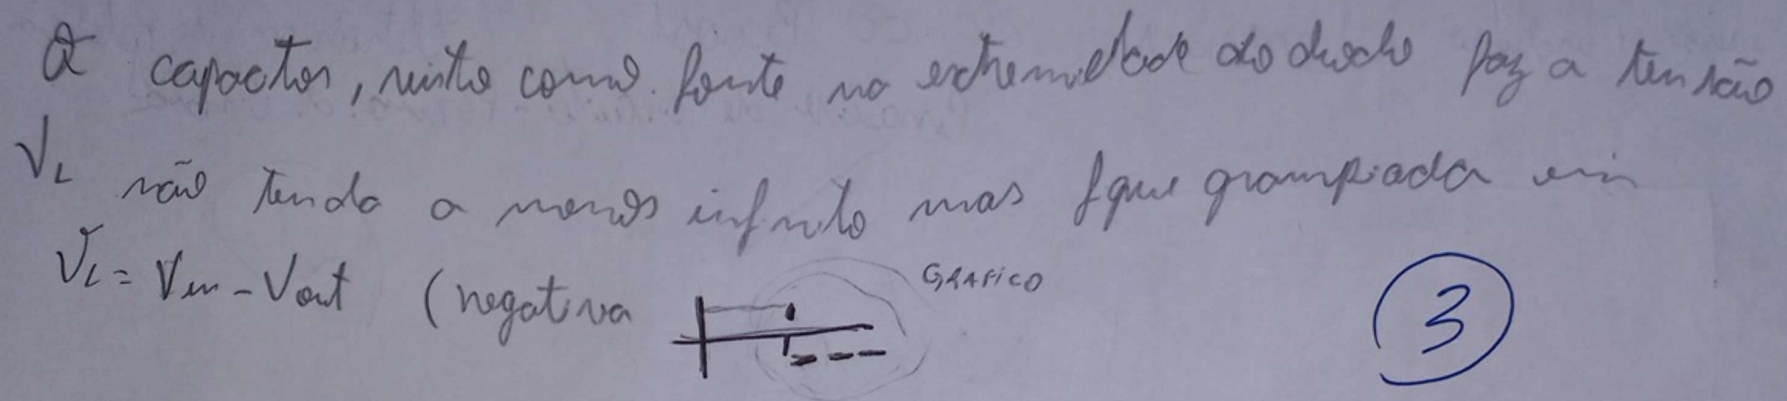 O capacitor, visto como fonte na extremidade do diodo faz a tensão
VL não tenda a menos infinito mas fique grampiada em
VL = Vin - Vout (negativa GRAFICO
3